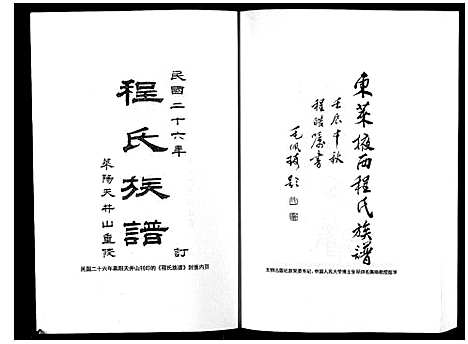 東萊掖西程氏族譜
壬辰中秋
程皓囑書
毛佩琦題
民國二十六年
程氏族譜
萊陽天井山重修
訂
民國二十六年萊陽天井山刊印的《程氏族譜》封面内頁